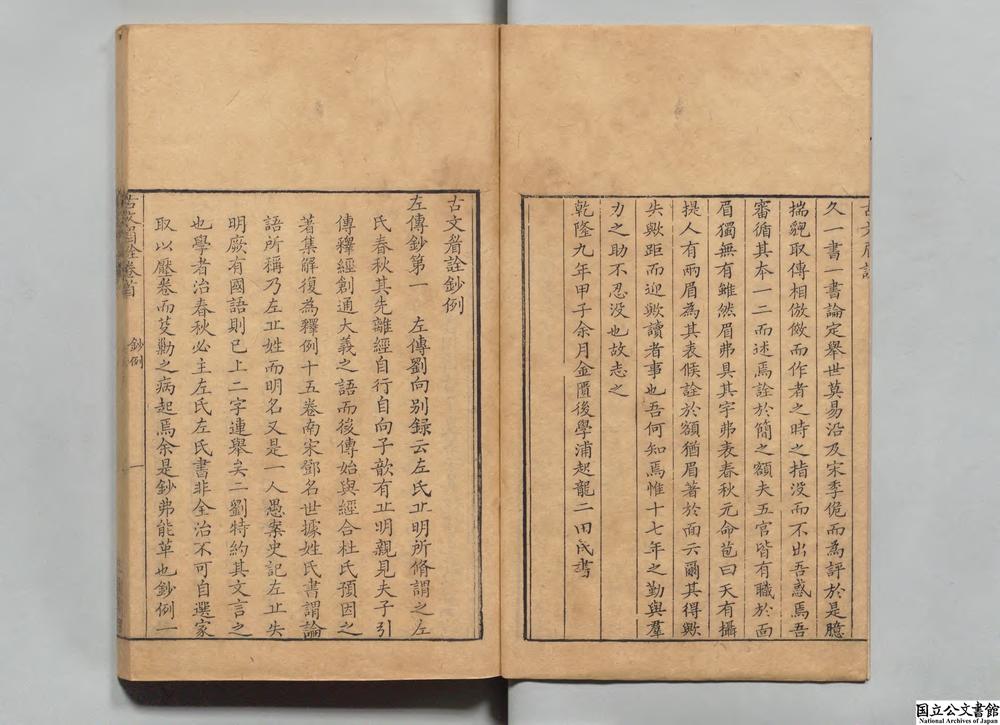 久一書一書論定舉世莫易沿及宋季俛而為評於是臆
揣貌取傳相倣斆而作者之時之指没而不出吾惑焉吾
審循其本一二而述焉詮於簡之額夫五官皆有職於面
眉獨無有雖然眉弗具其宇弗表春秋元命苞曰天有攝
提人有兩眉為其表候詮於額猶眉著於面云爾其得歟
失歟距而迎歟讀者事也吾何知焉惟十七年之勤與羣
力之助不忍没也故志之
乾隆九年甲子余月金匱後學浦起龍二田氏書
古文眉詮鈔例
左傳鈔第一 左傳劉向别録云左氏丘明所脩謂之左
氏春秋其先離經自行自向子歆有丘明親見夫子引
傳釋經創通大義之語而後傳始與經合杜氏預因之
著集解復為釋例十五卷南宋鄧名世據姓氏書謂論
語所稱乃左丘姓而明名又是一人愚案史記左丘失
明厥有國語則已上二字連舉矣二劉特約其文言之
也學者治春秋必主左氏左氏書非全治不可自選家
取以壓卷而芟勦之病起焉余是鈔弗能革也鈔例一
古文眉詮卷首 鈔例 一
国立公文書館
National Archives of Japan